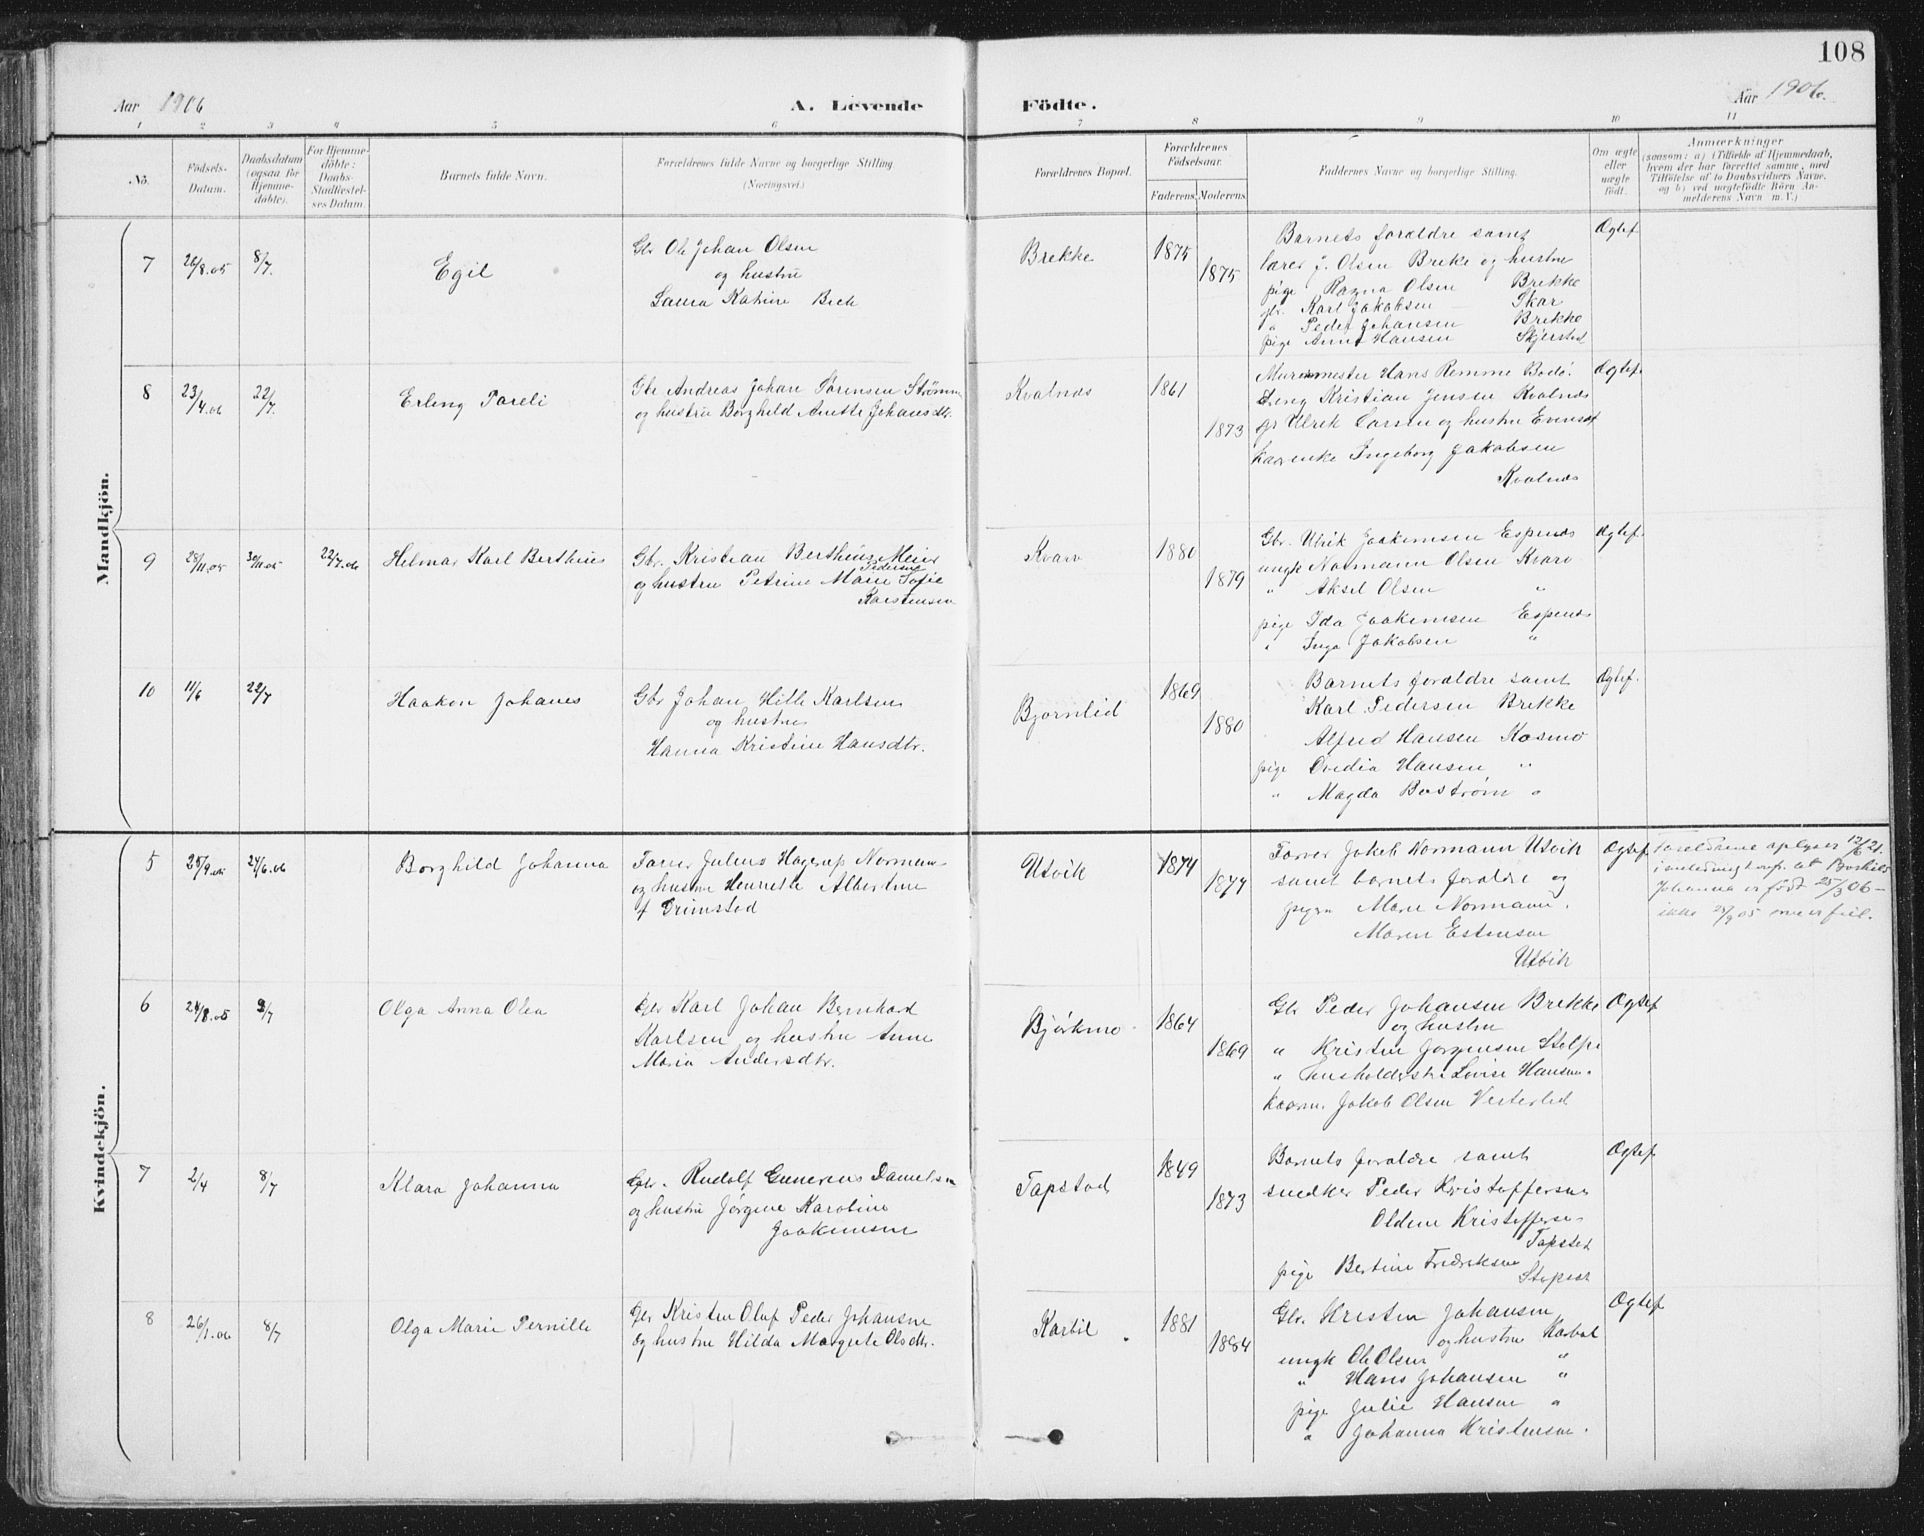 108
Aar 1906
A. Levende
Födte.
Aar 1906.
1 2 3 4 5 6 7 8 9 10 11
No.
Födsels-
Datum.
Daabsdatum
(ogsaa for
Hjemme-
döbte).
For Hjemme-
döbte:
Daabs-
Stadfæstel-
ses Datum.
Barnets fulde Navn.
Forældrenes fulde Navne og borgerlige Stilling
(Næringsvei.)
Forældrenes Bopæl.
Forældrenes
Födselsaar.
Faderens. Moderens.
Faddernes Navne og borgerlige Stilling.
Om ægte
eller
uægte
födt.
Anmærkninger
(saasom: a) i Tilfælde af Hjemmedaab,
hvem der har forrettet samme, med
Tilföielse af to Daabsvidners Navne,
og b) ved uægtefödte Börn An-
melderens Navn m. V.)
Mandkjön.
7
26/8.05
8/7.
Egil
Gbr Ole Johan Olsen
og hustru
Laura Katrine Bech
Brekke
1875
1875
Barnets forældre samt
lærer J. Olsen Breke og hustru
pige Ragna Olsen Brekke
gbr. Karl Jakobsen Skar
" Peder Johansen Brekke
pige Anna Hansen Skjerstad
Ægtef
8
23/4.06
22/7.
Erling Pareli
Gbr Andreas Johan Sørensen Strømm
og hustru Borghild Anette Johansdtr.
Kvalnæs
1861
1873
Murermester Hans Remme Bodø.
Kristian Jensen Kvalnæs
gbr Ulrik Larsen og hustru
Kaarenke Ingeborg Jakobsen
Kvalnæs
Ægtef.
9
28/11.05
30/11.05
22/7.06
Helmar Karl Berthius
Gbr. Kristian Berthius Meier
Pedersen
og hustru Petrine Marie Sofie
Karstensen
Kvarv
1880
1879
Gbr. Ulrik Joakimsen Espenæs
ungk Normann Olsen Kvarv
" Aksel Olsen "
pige Ida Joakimsen Espenæs
" Inga Jakobsen "
Ægtef.
10
11/6
22/7
Haakon Johanes
Gbr Johan Hille Karlsen
og hustru
Hanna Kristine Hansdtr.
Bjørnlid
1869
1880
Barnets forældre samt
Karl Pedersen Brekke
Alfred Hansen Kosmo
pige Ovedia Hansen "
" Magda Bostrøm "
Ægtef.
Kvindekjön.
5
25/9.05
24/6.06
Borghild Johanna
Farver Julius Hagerup Norman-
og hustru Henrette Albertine
f Grimstad
Utvik
1874
1877
Farver Jakob Normann Utvik
samt barnets forældre og
pigen Marie Normann.
Maren Estensen
Utvik
Ægtef
Forældrene oplyser 12/6 21.
at Borhild
Johanna er født 25/3 06 –
ikke 25/9 05
6
24/8.05
8/7
Olga Anna Olea
Gbr Karl Johan Bernhard
Karlsen og hustru Anne
Maria Andersdtr.
Bjørkmo
1864
1869
Gbr Peder Johansen Brekke
og hustru
" Kristen Jørgensen Stolpe
" husholderske Lovise Hansen.
kaarm. Jakob Olsen Vesterlid
Ægtef
7
2/4
8/7
Klara Johanna
Gbr. Rudolf Gunerius Danielsen
og hustru Jørgine Karoline
Joakimsen
Tapstad
1849
1873
Barnets forældre samt
snedker Peder Kristoffersen
Oldine Kristofferse-
Tapstad
pige Bertine Fredriksen
Ægtef
8
26/1.06
8/7
Olga Marie Pernille
Gbr Kristen Oluf Peder Johansen
og hustru Hilda Margrete Olsdtr.
Karbøl
1881
1884
Gbr. Kristen Johansen
og hustru Karbøl
ungk Ole Olsen "
" Hans Johansen "
pige Julie Hansen "
" Johanna Kristensen.
Ægtef